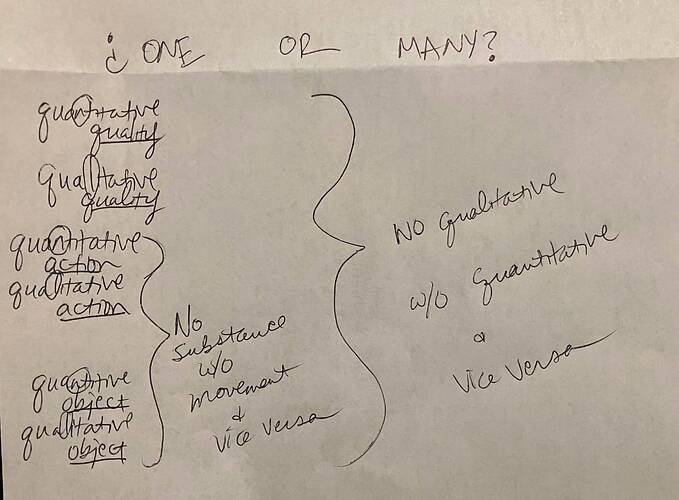 ¿ ONE OR MANY?
quantitative
quality
qualitative
quality
quantitative
action
qualitative
action
quantitive
object
qualitative
object
No
substance
w/o
movement
&
vice versa
No qualitative
w/o quantitative
&
vice versa